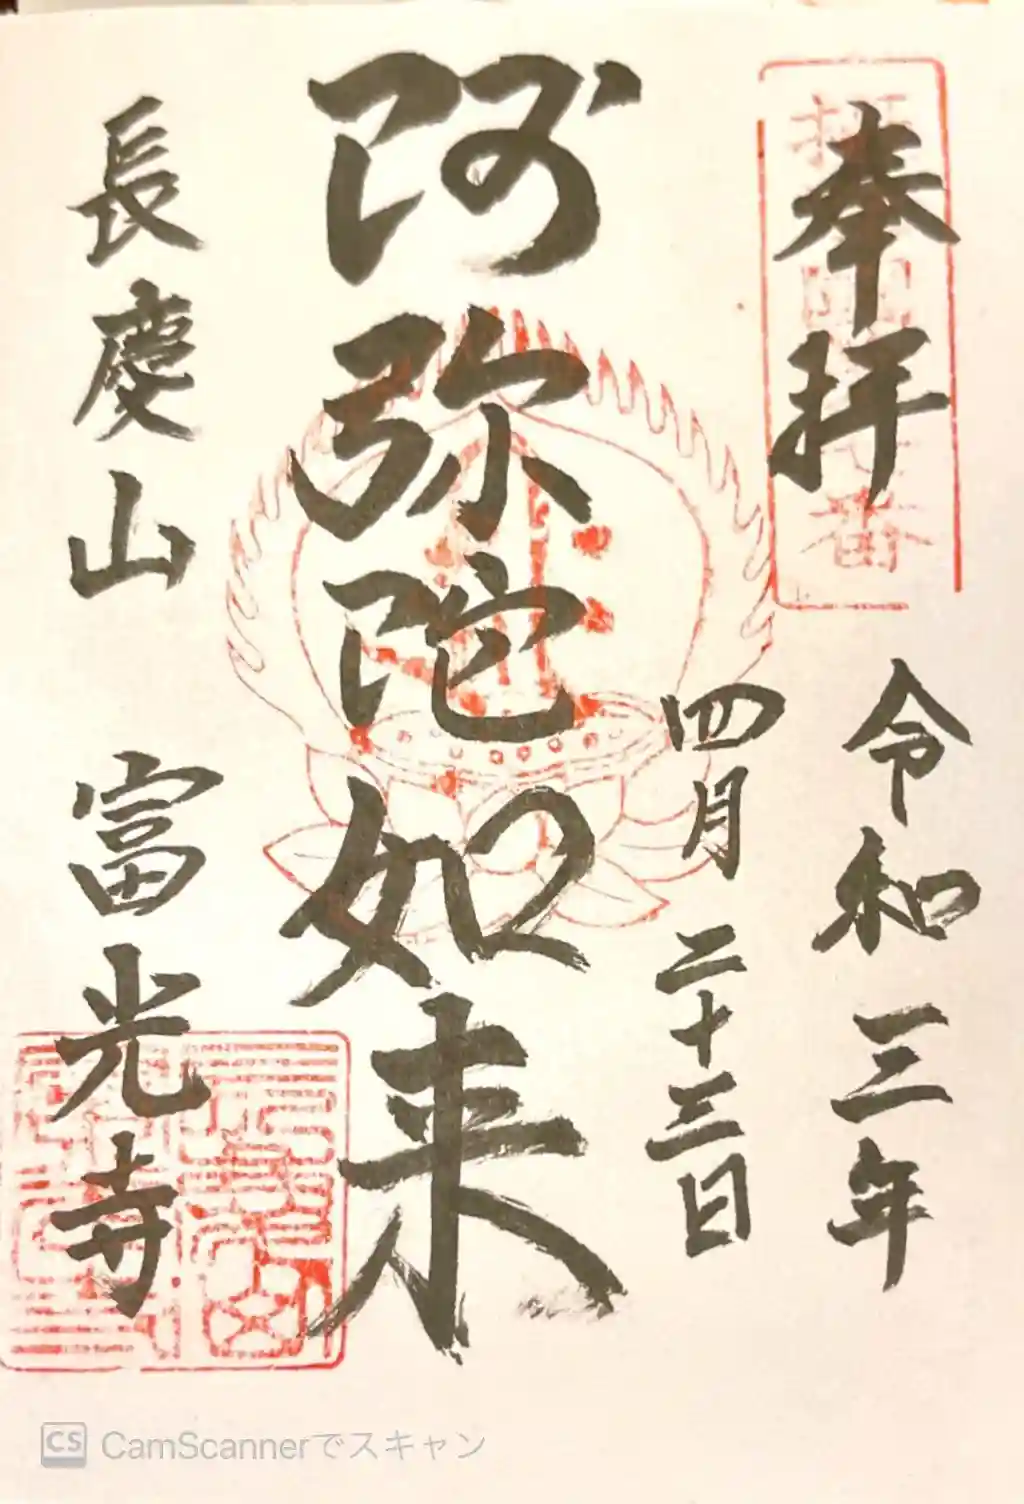 奉拝
令和三年
四月二十三日
阿弥陀如来
長慶山 富光寺
CS CamScannerでスキャン